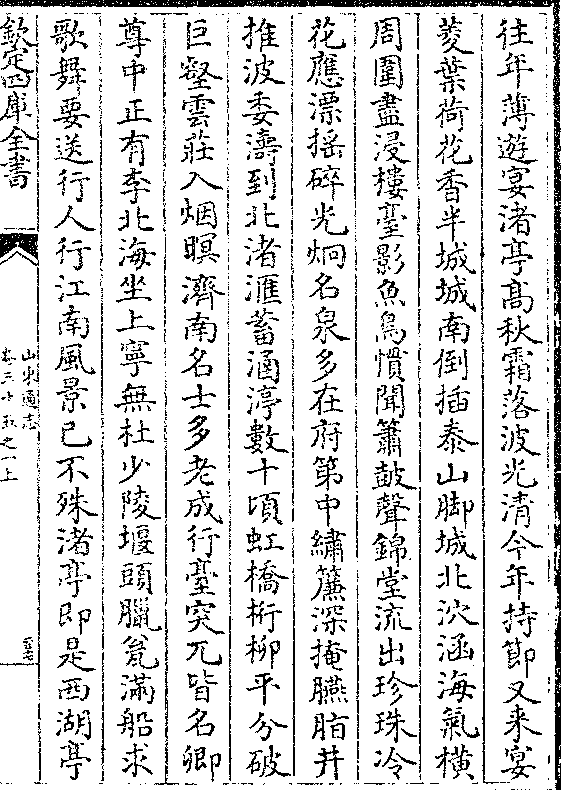 往年薄遊宴渚亭髙秋霜落波光清今年持節又来宴
菱葉荷花香半城城南倒插泰山脚城北沇涵海氣横
周圍盡浸樓臺影魚鳥慣聞簫皷聲錦堂流出珍珠冷
花應漂摇碎光炯名泉多在府第中繡簾深掩臙脂井
推波委濤到北渚滙蓄涵渟數十頃虹橋桁柳平分破
巨壑雲莊入烟暝濟南名士多老成行臺突兀皆名卿
尊中正有李北海坐上寧無杜少陵堰頭臘瓮滿船求
歌舞要送行人行江南風景已不殊渚亭即是西湖亭
欽定四庫全書
山東通志
卷三十五之一上